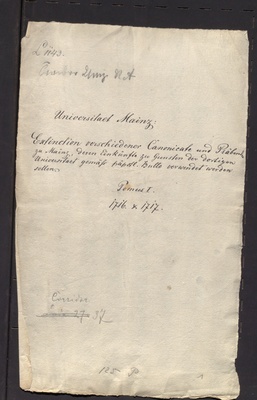 Universitaet Mainz:
Extinction verschiedener Canonicate und Präbenden
zu Mainz, deren Einkünfte zu Gunsten der dortigen
Universitaet gemäß päpstl. Bulle verwendet werden
sollen:
Tomus I.
1716 & 1717.
37